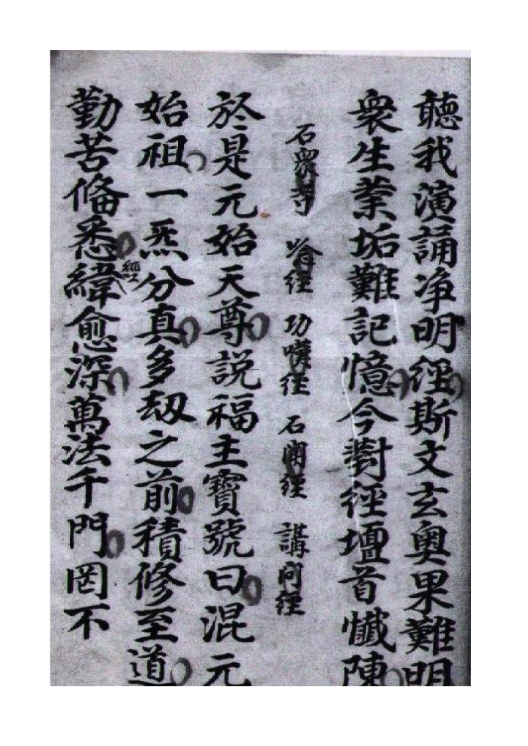 聽我演誦净明經斯文玄奥果難明
衆生業垢難記憶今對經壇音懺陳
石經 石經 講问經
於是元始天尊説福主寶號曰混元
始祖一炁分真多刼之前積修至道
勤苦俻悉經緯愈深萬法千門罔不